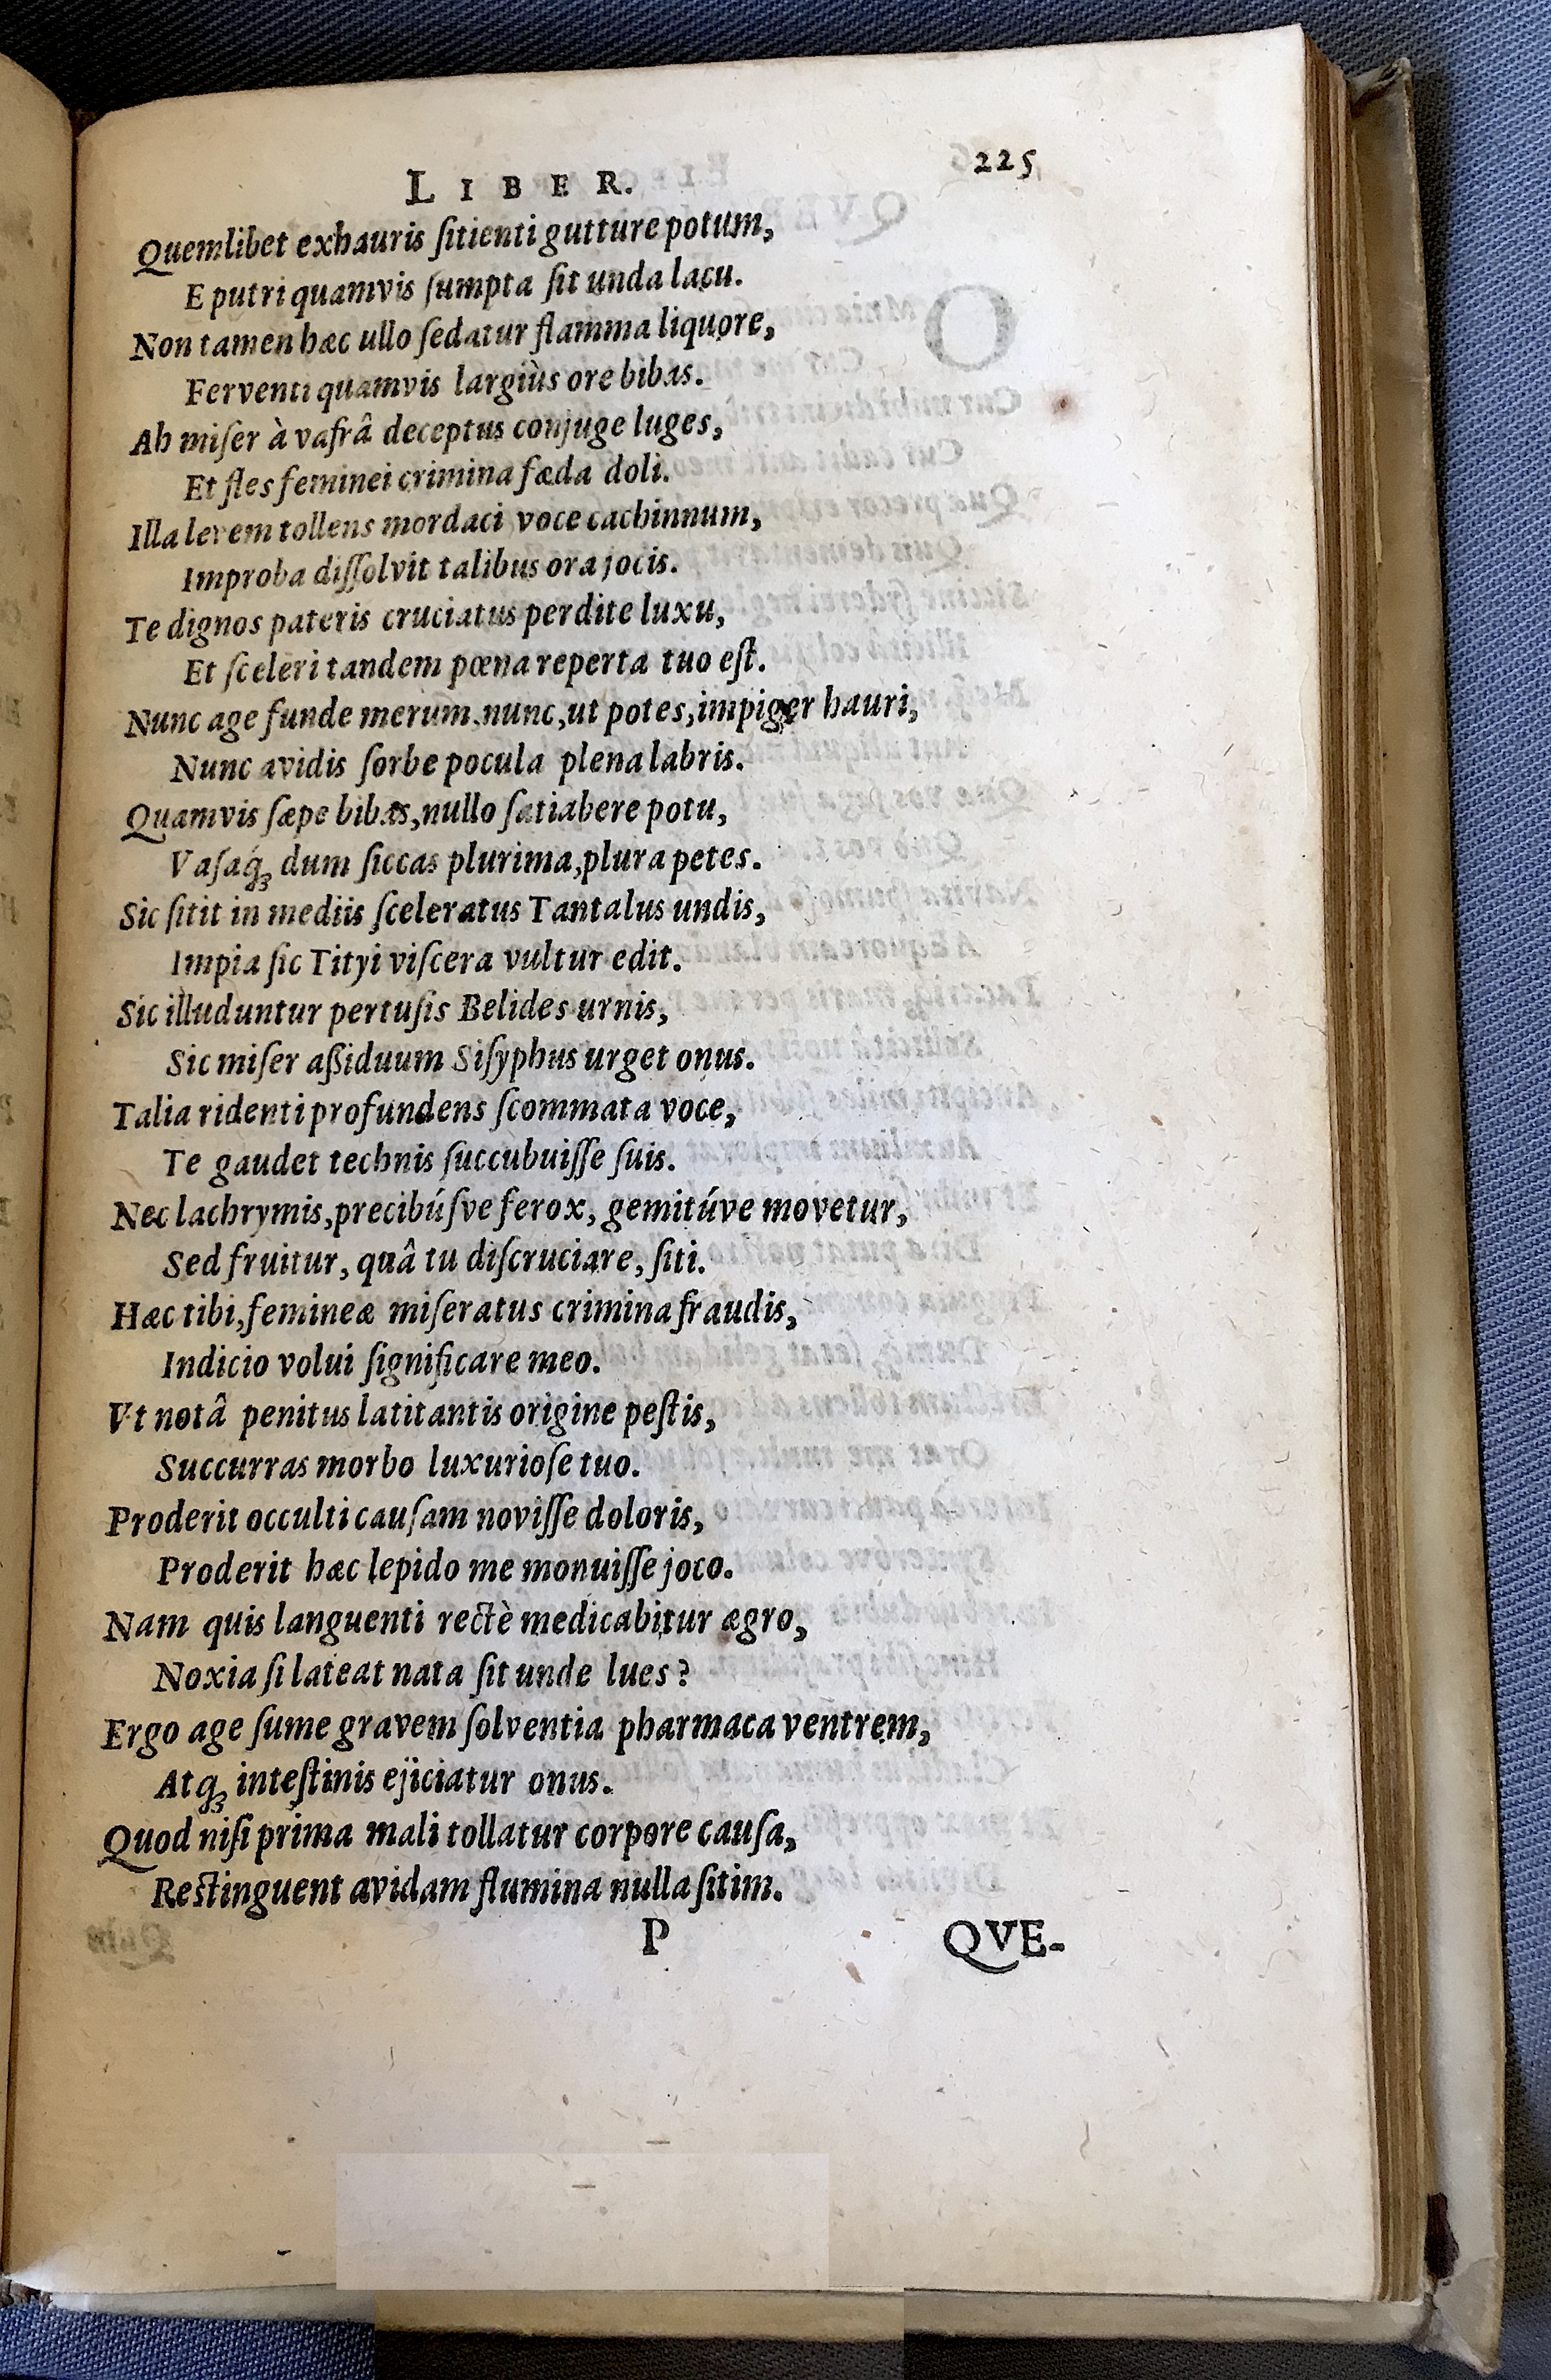 LIBER. 225
Quemlibet exhauris ſitienti gutture potum,
E putri quamvis ſumpta ſit unda lacu.
Non tamen hæc ullo ſedatur flamma liquore,
Ferventi quamvis largiùs ore bibas.
Ah miſer à vafrâ deceptus conjuge luges,
Et fles feminei crimina fæda doli.
Illa levem tollens mordaci voce cachinnum,
Improba diſſolvit talibus ora jocis.
Te dignos pateris cruciatus perdite luxu,
Et ſceleri tandem pœna reperta tuo eſt.
Nunc age funde merum, nunc, ut potes, impiger hauri,
Nunc avidis ſorbe pocula plena labris.
Quamvis ſæpe bibas, nullo ſatiabere potu,
Vaſaq́; dum ſiccas plurima, plura petes.
Sic ſitit in mediis ſceleratus Tantalus undis,
Impia ſic Tityi viſcera vultur edit.
Sic illuduntur pertuſis Belides urnis,
Sic miſer aßiduum Siſyphus urget onus.
Talia ridenti profundens ſcommata voce,
Te gaudet technis ſuccubuiſſe ſuis.
Nec lachrymis, precibúſve ferox, gemitúve movetur,
Sed fruitur, quâ tu diſcruciare, ſiti.
Hæc tibi, femineæ miſeratus crimina fraudis,
Indicio volui ſignificare meo.
Vt notâ penitus latitantis origine peſtis,
Succurras morbo luxurioſe tuo.
Proderit occulti cauſam noviſſe doloris,
Proderit hæc lepido me monuiſſe joco.
Nam quis languenti rectè medicabitur ægro,
Noxia ſi lateat nata ſit unde lues?
Ergo age ſume gravem ſolventia pharmaca ventrem,
Atq; inteſtinis ejiciatur onus.
Quod niſi prima mali tollatur corpore cauſa,
Reſtinguent avidam flumina nulla ſitim.
P QVE-